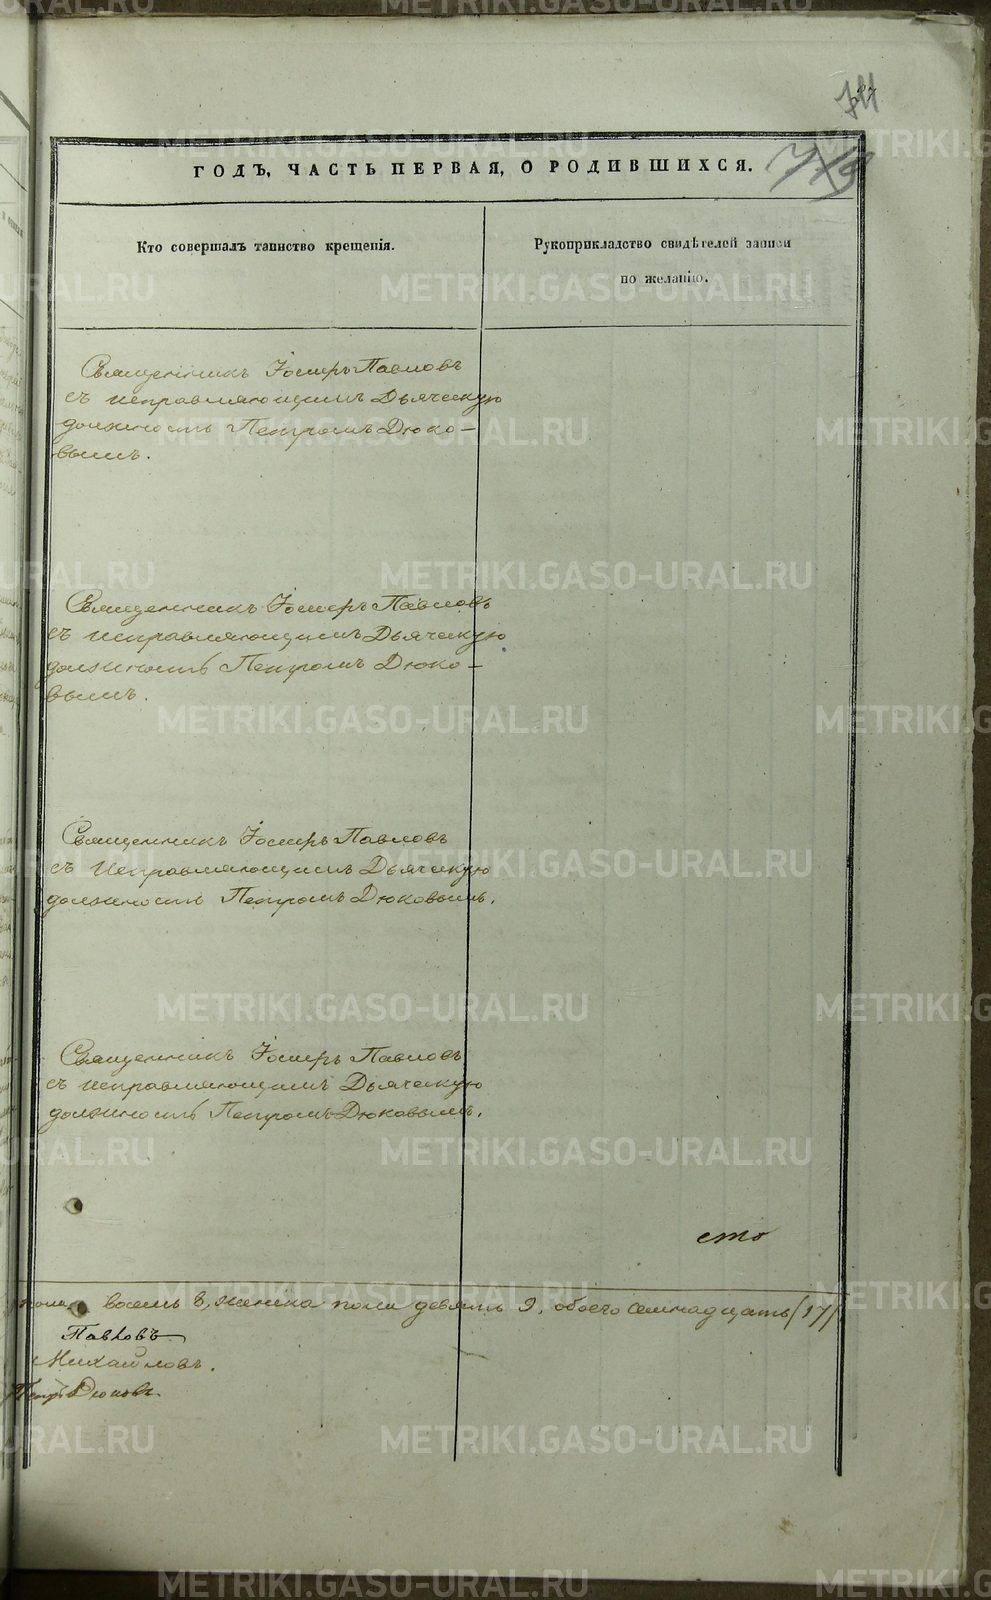 711
ГОДЪ, ЧАСТЬ ПЕРВАЯ, О РОДИВШИХСЯ.
Кто совершалъ таинство крещенія.
Рукоприкладство свидѣтелей записи
по желанію.
Священникъ Іосифъ Павловъ
съ исправляющимъ Дьяческую
должность Петромъ Дюко-
вымъ.
Священникъ Іосифъ Павловъ
съ исправляющимъ Дьяческую
должность Петромъ Дюко-
вымъ.
Священникъ Іосифъ Павловъ
съ Исправляющимъ Дьяческую
должность Петромъ Дюковымъ.
Священникъ Іосифъ Павловъ
съ исправляющимъ Дьяческую
должность Петромъ Дюковымъ.
сто
пола восемь 8, женска пола девять 9, обоего семнадцать (17)
Павловъ
Михайловъ.
Петръ Дюковъ.
METRIKI.GASO-URAL.RU